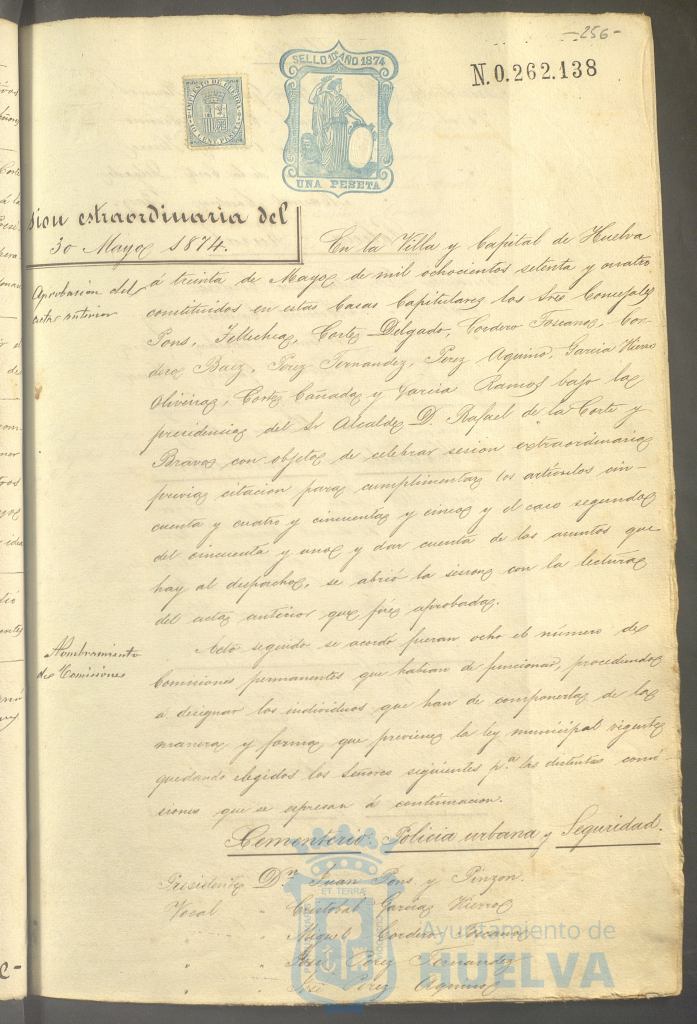 -256-
SELLO 10º AÑO 1874
IMPUESTO DE GUERRA
10 CENT. PESETA
UNA PESETA
N.0.262.138
sion estraordinaria del
30 Mayo 1874.
En la Villa y Capital de Huelva
Aprobacion del
acta anterior
á treinta de Mayo de mil ochocientos setenta y cuatro
constituidos en estas Casas Capitulares los Sres Concejales
Pons, Tellechea, Cortes Delgado, Cordero Toscano, Cor-
dero Baez, Perez Fernandez, Perez Aquino, Garcia Hierro
Oliveira, Cortes Cañada y Garcia Ramos bajo la
presidencia del Sr Alcalde D. Rafael de la Corte y
Bravo con objeto de celebrar sesion extraordinaria
previa citacion para cumplimentar los artículos cin-
cuenta y cuatro y cincuenta y cinco y el caso segundo
del cincuenta y uno y dar cuenta de los asuntos que
hay al despacho, se abrió la sesion con la lectura
del acta anterior que fué aprobada.
Nombramiento
de Comisiones
Acto seguido se acordó fueran ocho el número de
Comisiones permanentes que habian de funcionar, procediendo
á designar los individuos que han de componerlas de la
manera y forma que previene la ley municipal vigente
quedando elegidos los Señores siguientes pª las distintas comi-
siones que se expresan á continuacion.
Cementerio, Policia urbana y Seguridad.
Presidente Dn Juan Pons y Pinzon.
Vocal " Cristobal Garcia Hierro
" " Miguel Cordero Toscano
" " José Perez Fernandez
" " José Perez Aquino
Ayuntamiento de
HUELVA